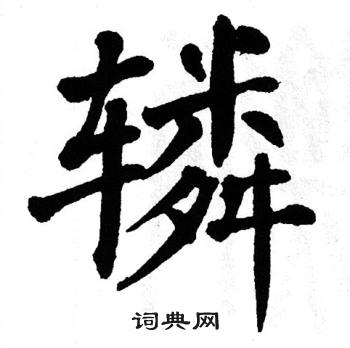 辚
词典网